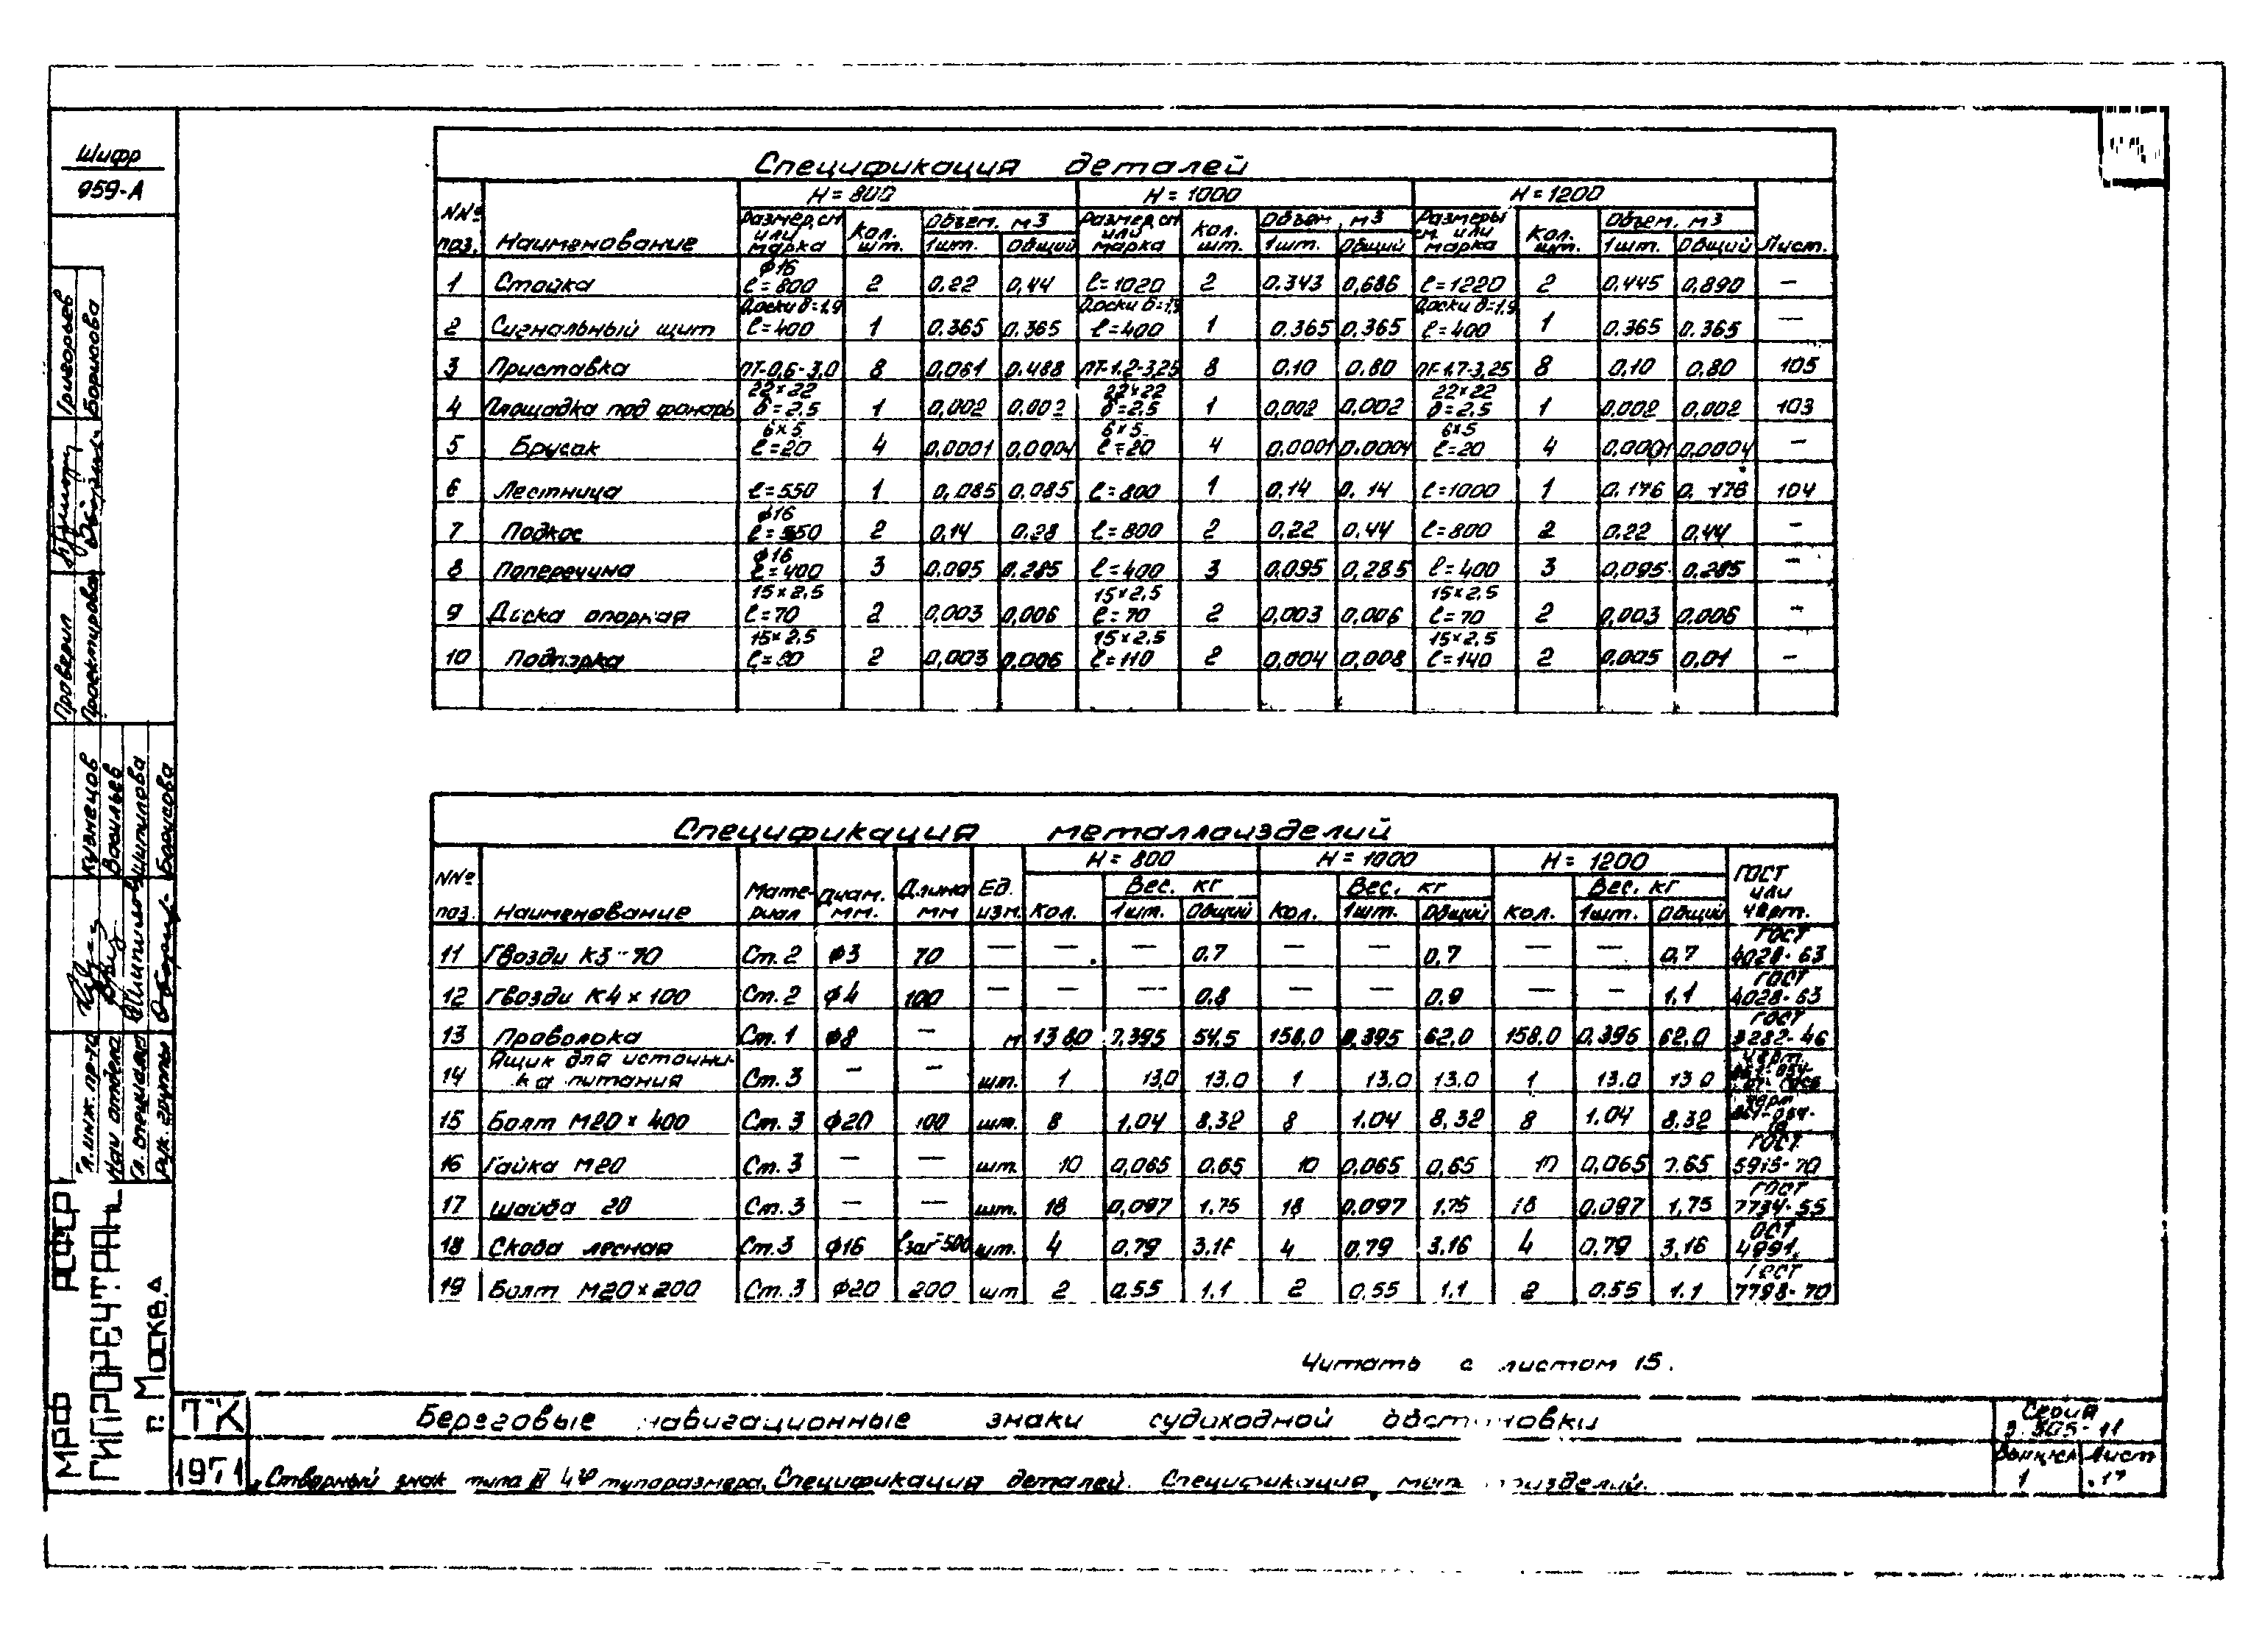 Шифр
959-А
Спецификация деталей
NNº поз. | Наименование | H = 800 | H = 1000 | H = 1200 | Лист.
Размер, см или марка | Кол. шт. | Объем, м3 | Размер, см или марка | Кол. шт. | Объем, м3 | Размеры см. или марка | Кол. шт. | Объем, м3
1шт. | Общий | 1шт. | Общий | 1шт. | Общий
1 | Стойка | ϕ16 ℓ=800 | 2 | 0,22 | 0,44 | ℓ=1020 | 2 | 0.343 | 0,686 | ℓ=1220 | 2 | 0,445 | 0,890 | —
2 | Сигнальный щит | Доски δ=1,9 ℓ=400 | 1 | 0.365 | 0.365 | Доски δ=1,9 ℓ=400 | 1 | 0.365 | 0.365 | Доски δ=1,9 ℓ=400 | 1 | 0.365 | 0.365 | —
3 | Приставка | ПТ-0,6-3,0 | 8 | 0,061 | 0.488 | ПТ-1.2-3,25 | 8 | 0.10 | 0.80 | ПТ-1.7-3,25 | 8 | 0,10 | 0,80 | 105
4 | Площадка под фонарь | 22×22 δ=2,5 | 1 | 0,002 | 0.002 | 22×22 δ=2,5 | 1 | 0,002 | 0,002 | 22×22 δ=2,5 | 1 | 0,002 | 0,002 | 103
5 | Брусок | 6×5 ℓ=20 | 4 | 0,0001 | 0,0004 | 6×5 ℓ=20 | 4 | 0,0001 | 0,0004 | 6×5 ℓ=20 | 4 | 0,0001 | 0,0004 | —
6 | Лестница | ℓ=550 | 1 | 0,085 | 0.085 | ℓ=800 | 1 | 0,14 | 0.14 | ℓ=1000 | 1 | 0.176 | 0.176 | 104
7 | Подкос | ϕ16 ℓ=550 | 2 | 0,14 | 0.28 | ℓ=800 | 2 | 0,22 | 0,44 | ℓ=800 | 2 | 0.22 | 0,44 | —
8 | Поперечина | ϕ16 ℓ=400 | 3 | 0.095 | 0.285 | ℓ=400 | 3 | 0.095 | 0,285 | ℓ=400 | 3 | 0,095 | 0.285 | —
9 | Доска опорная | 15×2,5 ℓ=70 | 2 | 0,003 | 0,006 | 15×2,5 ℓ=70 | 2 | 0,003 | 0,006 | 15×2,5 ℓ=70 | 2 | 0,003 | 0,006 | —
10 | Подпорка | 15×2,5 ℓ=80 | 2 | 0,003 | 0,006 | 15×2,5 ℓ=110 | 2 | 0,004 | 0,008 | 15×2,5 ℓ=140 | 2 | 0,005 | 0,01 | —
Спецификация металлоизделий
NNº поз. | Наименование | Материал | Диам. мм. | Длина мм | Ед. изм. | H = 800 | H = 1000 | H = 1200 | ГОСТ или черт.
Кол. | Вес. кг | Кол. | Вес. кг | Кол. | Вес. кг
1шт. | Общий | 1шт. | Общий | 1шт. | Общий
11 | Гвозди К3-70 | Ст. 2 | ϕ3 | 70 | — | — | — | 0.7 | — | — | 0.7 | — | — | 0.7 | ГОСТ 4028-63
12 | Гвозди К4×100 | Ст. 2 | ϕ4 | 100 | — | — | — | 0.8 | — | — | 0.9 | — | — | 1.1 | ГОСТ 4028-63
13 | Проволока | Ст. 1 | ϕ8 | — | м | 138.0 | 0.395 | 54,5 | 158,0 | 0.395 | 62,0 | 158,0 | 0.395 | 62,0 | ГОСТ 3282-46
14 | Ящик для источника питания | Ст. 3 | — | — | шт. | 1 | 13,0 | 13.0 | 1 | 13.0 | 13.0 | 1 | 13.0 | 13.0 | черт.
15 | Болт М20×400 | Ст. 3 | ϕ20 | 100 | шт. | 8 | 1,04 | 8,32 | 8 | 1.04 | 8,32 | 8 | 1.04 | 8,32 | черт
16 | Гайка М20 | Ст. 3 | — | — | шт. | 10 | 0,065 | 0.65 | 10 | 0,065 | 0,65 | 10 | 0,065 | 0.65 | ГОСТ 5915-70
17 | Шайба 20 | Ст. 3 | — | — | шт. | 18 | 0,097 | 1.75 | 18 | 0,097 | 1,75 | 18 | 0,097 | 1,75 | ГОСТ
18 | Скоба лесная | Ст. 3 | ϕ16 | ℓзаг=500 | шт. | 4 | 0,79 | 3.16 | 4 | 0,79 | 3.16 | 4 | 0.79 | 3,16 | ОСТ 4991.
19 | Болт М20×200 | Ст. 3 | ϕ20 | 200 | шт | 2 | 0.55 | 1.1 | 2 | 0,55 | 1,1 | 2 | 0.55 | 1.1 | ГОСТ 7798-70
Читать с листом 15.
ТК
1971
Береговые навигационные знаки судоходной обстановки
Створный знак типа 4го типоразмера. Спецификация деталей. Спецификация металлоизделий.
Серия
3.505-11
Выпуск 1
Лист
Проверил Григорьев
Проектировал Борисова
Гл. инж. пр-та Кузнецов
Нач отдела Васильев
Гл. специалист Шипилова
Рук. группы Борисова
МРФ РСФСР
ГИПРОРЕЧТРАНС
г. Москва